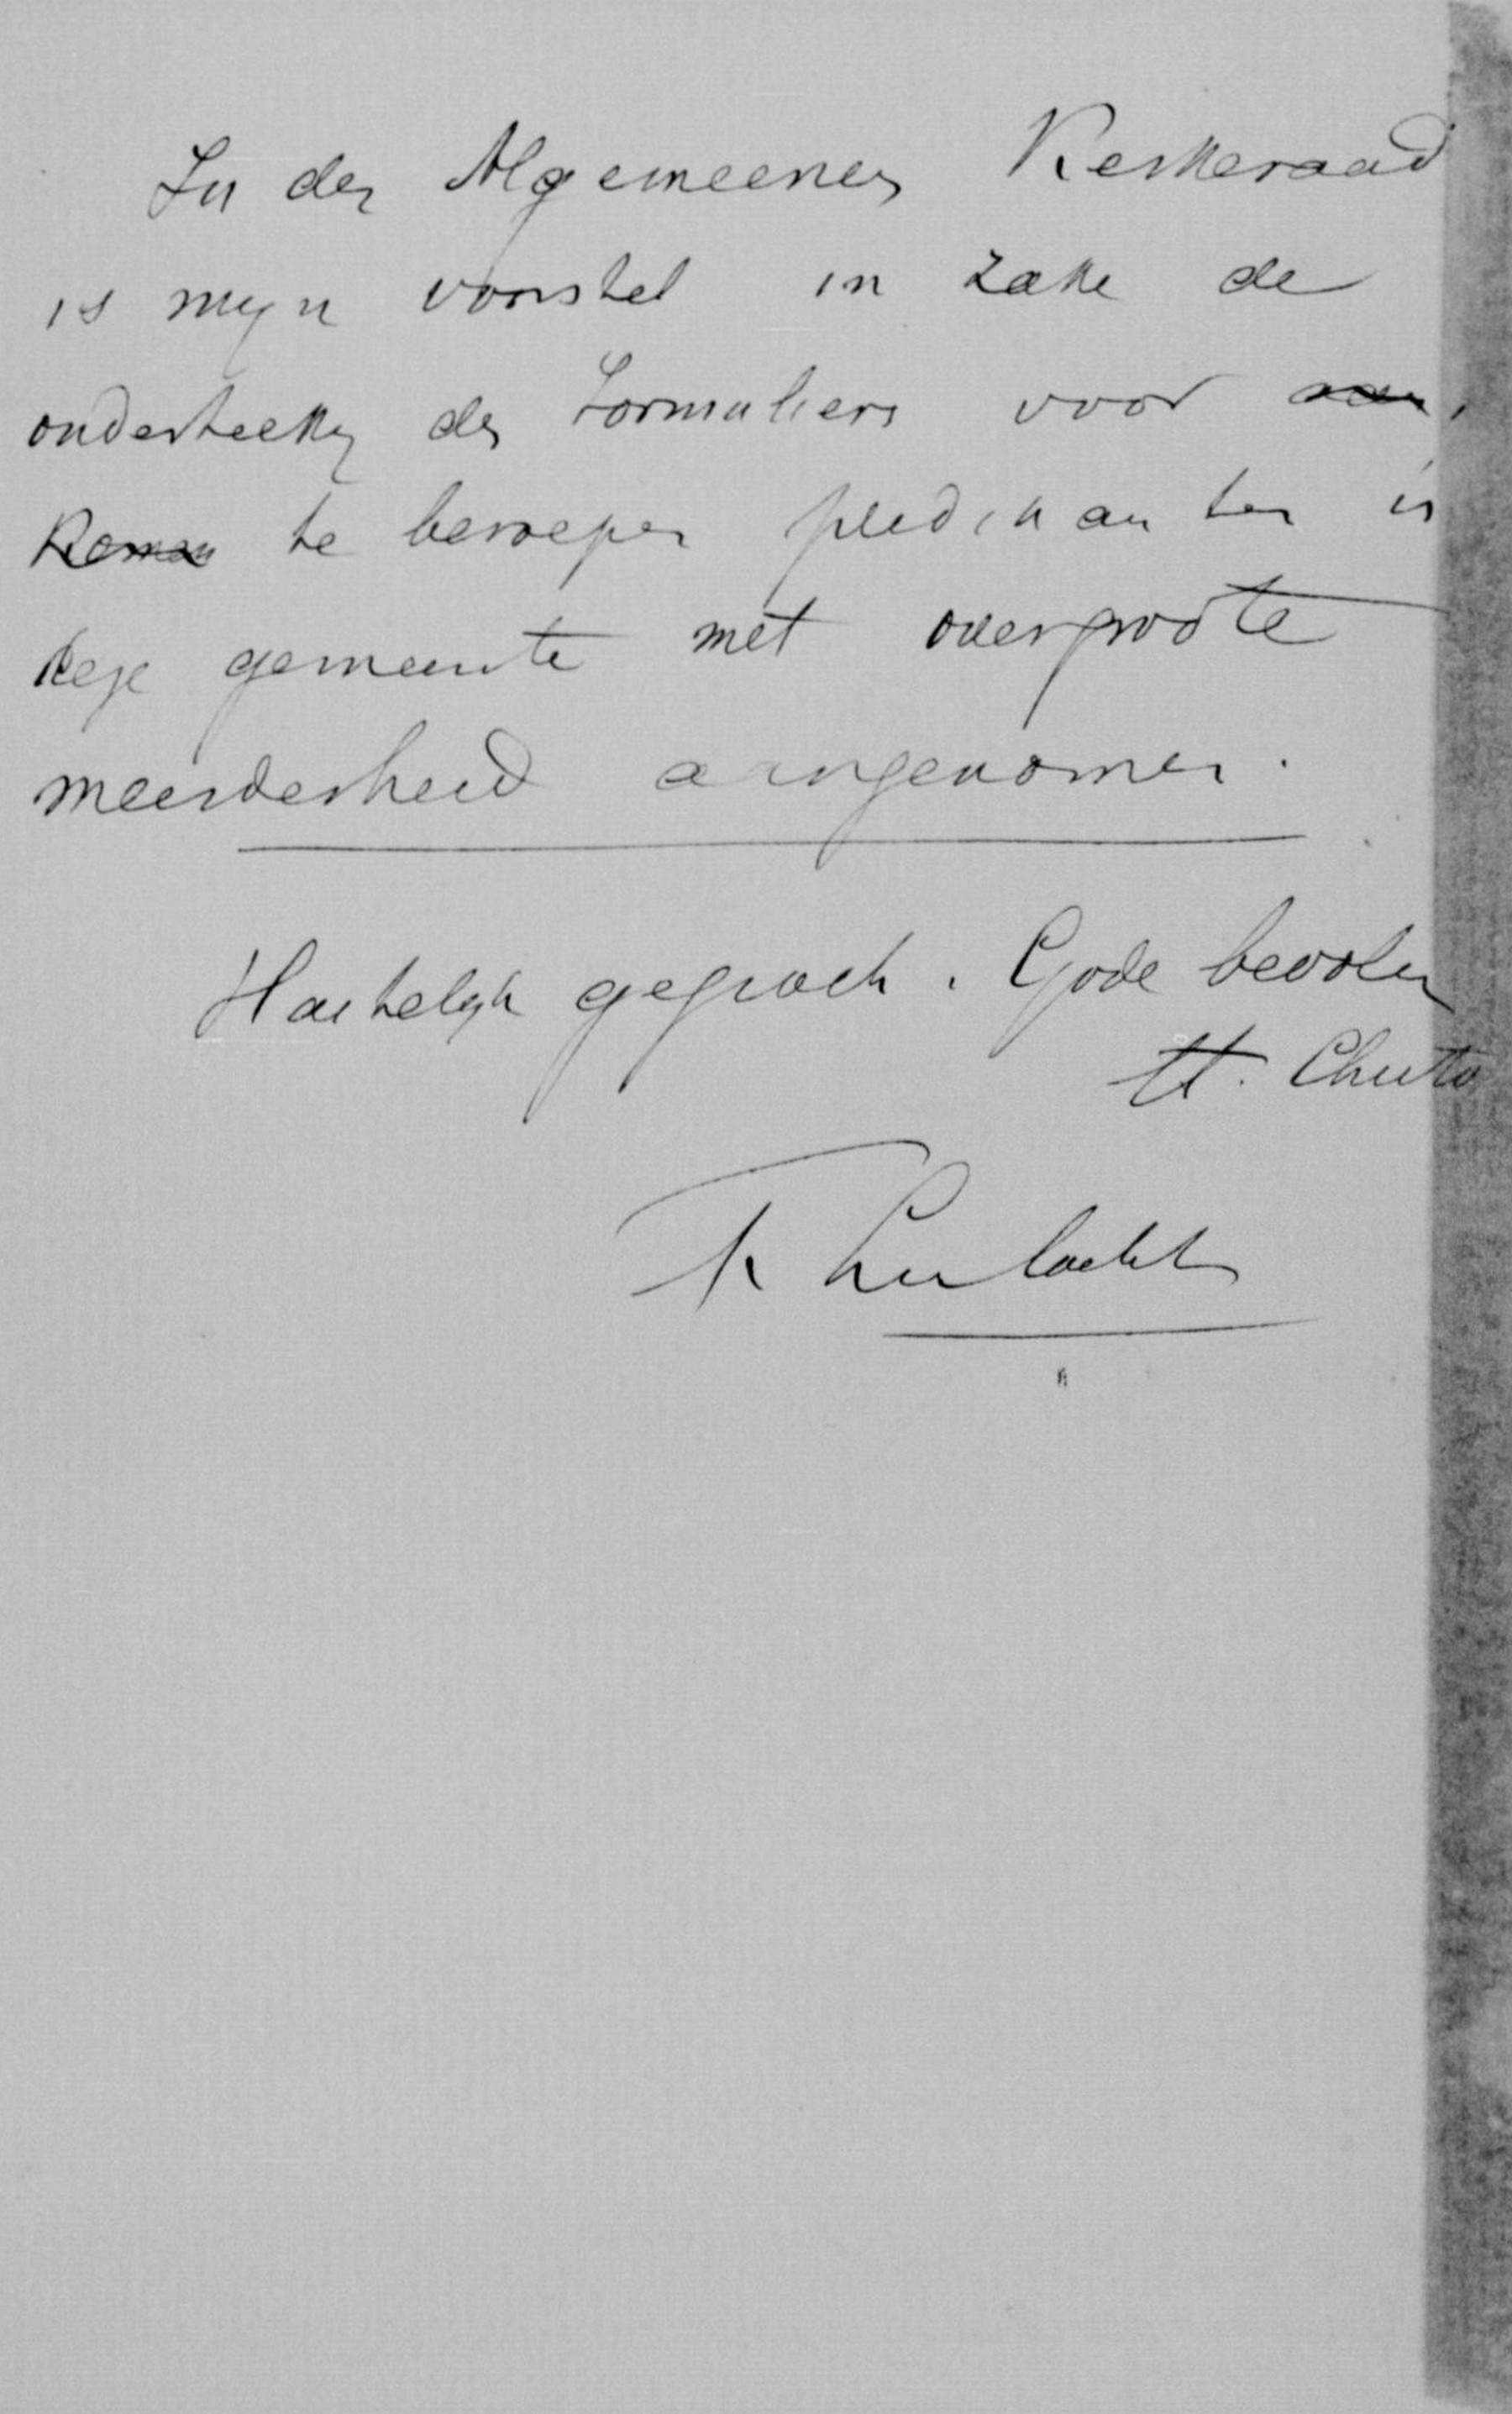 In den Algemeenen Kerkeraad
is myn voorstel in zake de
onderteekg der Formuliers voor
te beroepen predikanten in
deze gemeente met overgroote
meerderheid aangenomen.
Hartelyk gegroet. Gode bevolen
tt. Christo